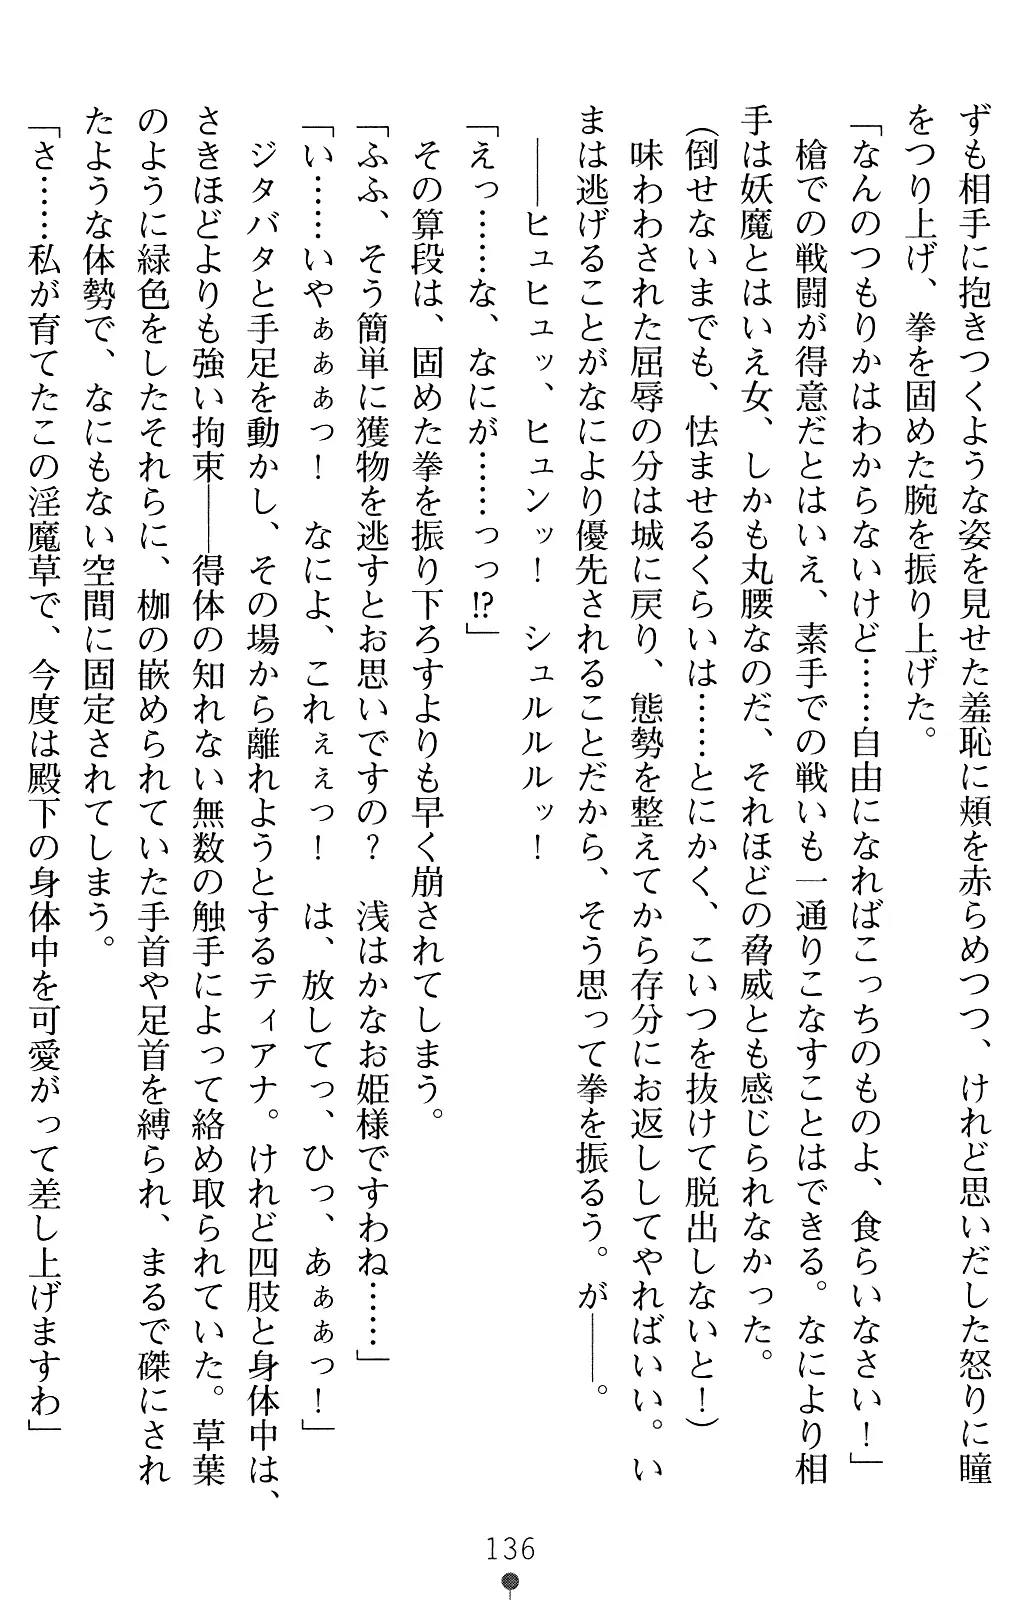 ずも相手に抱きつくような姿を見せた羞恥に頬を赤らめつつ、けれど思いだした怒りに瞳
をつり上げ、拳を固めた腕を振り上げた。
「なんのつもりかはわからないけど……自由になればこっちのものよ、食らいなさい！」
　槍での戦闘が得意だとはいえ、素手での戦いも一通りこなすことはできる。なにより相
手は妖魔とはいえ女、しかも丸腰なのだ、それほどの脅威とも感じられなかった。
（倒せないまでも、怯ませるくらいは……とにかく、こいつを抜けて脱出しないと！）
　味わわされた屈辱の分は城に戻り、態勢を整えてから存分にお返ししてやればいい。い
まは逃げることがなにより優先されることだから、そう思って拳を振るう。が――。
　――ヒュヒュッ、ヒュンッ！　シュルルルッ！
「えっ……な、なにが……っっ!?」
　その算段は、固めた拳を振り下ろすよりも早く崩されてしまう。
「ふふ、そう簡単に獲物を逃すとお思いですの？　浅はかなお姫様ですわね……」
「い……いやぁぁぁっ！　なによ、これぇぇっ！　は、放してっ、ひっ、あぁぁっ！」
　ジタバタと手足を動かし、その場から離れようとするティアナ。けれど四肢と身体中は、
さきほどよりも強い拘束――得体の知れない無数の触手によって絡め取られていた。草葉
のように緑色をしたそれらに、枷の嵌められていた手首や足首を縛られ、まるで磔にされ
たような体勢で、なにもない空間に固定されてしまう。
「さ……私が育てたこの淫魔草で、今度は殿下の身体中を可愛がって差し上げますわ」
136